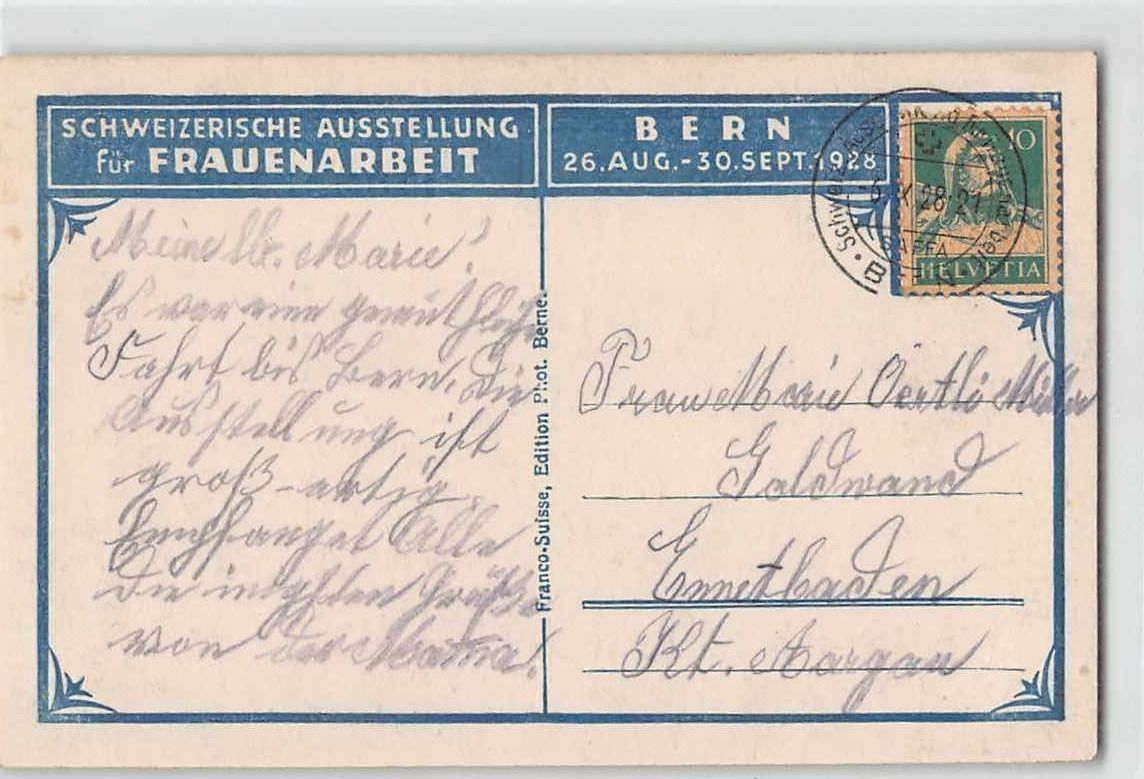 SCHWEIZERISCHE AUSSTELLUNG
für FRAUENARBEIT
BERN
26.AUG.-30.SEPT.1928
10
HELVETIA
SAFFA
Meine lb. Marie!
Es war eine gemüthliche
Fahrt bis Bern. Die
Ausstellung ist
groß-artig.
Empfanget Alle
Die Grüße
von der Mama.
Franco-Suisse, Edition Phot. Berne.
Frau Marie Oertli Müller
Goldwand
Ennetbaden
Kt. Aargau